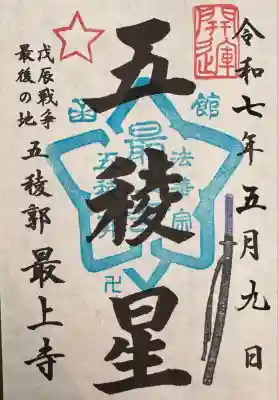 令和七年五月九日
開運
五稜星
函館
最
法華宗
五稜
卍
戊辰戦争
最後の地
五稜郭 最上寺